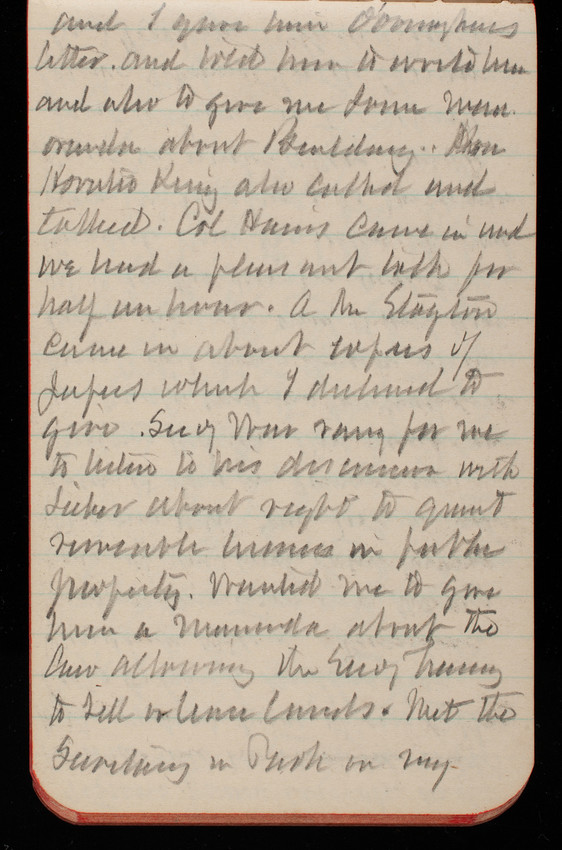 and I gave him O'Donaghues
letter. and told him to write him
and also to give me some mem
oranda about Building. Hon
Horatio King also called and
talked. Col Hains came in and
we had a pleasant talk for
half an hour. A Mr Slayton
came in about copies of
papers which I declined to
give. Secy War rang for me
to listen to his discussion with
Lieber about right to grant
revocable licenses in public
property. Wanted me to give
him a memoranda about the
law allowing the Secy Treasury
to sell or lease lands. Met the
Secretary in Park in my